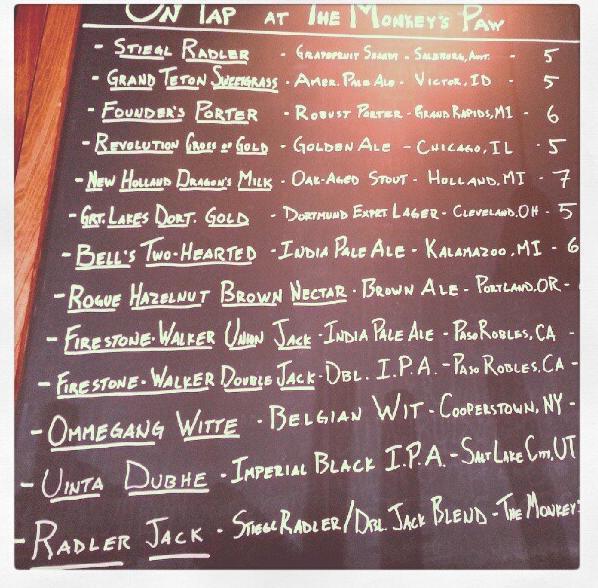 On Tap at The Monkey's Paw
- Stiegl Radler - Grapefruit Shandy - Salzburg, Aust. - 5
- Grand Teton Sweetgrass - Amer. Pale Ale - Victor, ID - 5
- Founder's Porter - Robust Porter - Grand Rapids, MI - 6
- Revolution Cross of Gold - Golden Ale - Chicago, IL - 5
- New Holland Dragon's Milk - Oak-Aged Stout - Holland, MI - 7
- Grt. Lakes Dort. Gold - Dortmund Export Lager - Cleveland, OH - 5
- Bell's Two-Hearted - India Pale Ale - Kalamazoo, MI - 6
- Rogue Hazelnut Brown Nectar - Brown Ale - Portland, OR -
- Firestone-Walker Union Jack - India Pale Ale - Paso Robles, CA -
- Firestone-Walker Double Jack - Dbl. I.P.A. - Paso Robles, CA -
- Ommegang Witte - Belgian Wit - Cooperstown, NY -
- Uinta Dubhe - Imperial Black I.P.A. - Salt Lake City, UT
- Radler Jack - Stiegl Radler/Dbl. Jack Blend - The Monkey's